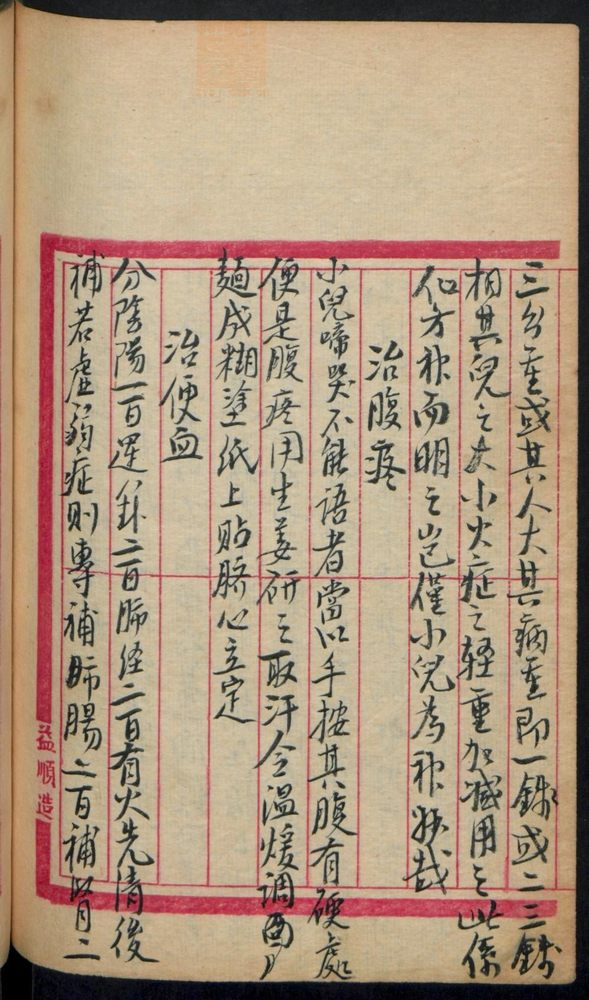 三分重或其人大其病重即一錢或二三錢
相其兒之大小火症之轻重加减用之此係
仙方神而明之岂僅小兒為神妙哉
治腹疼
小兒啼哭不能語者當以手按其腹有硬處
便是腹疼用生姜研之取汗令温煖调面
麺成糊塗纸上贴脐心立定
治便血
分陰陽一百運卦二百肺经二百有火先清後
補若虚弱症则專補肺腸二百補腎二
益順造